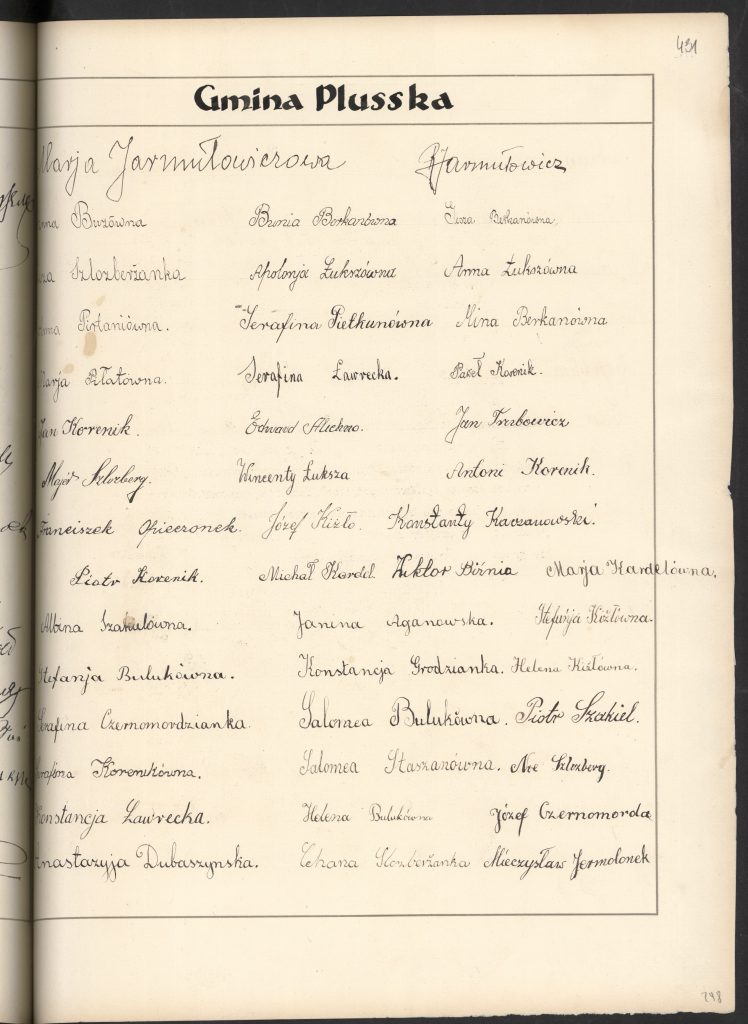 431
Gmina Plusska
Marja Jarmułowiczowa Jarmułowicz
Buzówna Bunia Berkanówna Berkanówna
Szlozberżanka Apolonja Łukszówna Anna Łukszówna
Serafina Pietkunówna Mina Berkanówna
Marja Piłatówna. Serafina Ławrecka. Paweł Korenik.
Jan Korenik. Edward Jan Trubowicz
Szlozberg. Wincenty Łuksza Antoni Korenik.
Franciszek Pieczonek. Józef Kizło. Konstanty Kaczanowski.
Piotr Korenik. Michał Kardel. Wiktor Biźnia Marja Kardelówna.
Albina Szakulówna. Janina Aganowska. Stefanja Kizłówna.
Stefanja Bulukówna. Konstancja Grodzianka. Helena Kizłówna.
Serafina Czernomordzianka. Salomea Bulukówna. Piotr Szakiel.
Serafina Korenikówna. Salomea Staszanówna. Szlozberg.
Konstancja Ławrecka. Helena Bulukówna Józef Czernomorda
Anastazyja Dubaszynska. Chana Slozberżanka Mieczysław Jermolonek
248